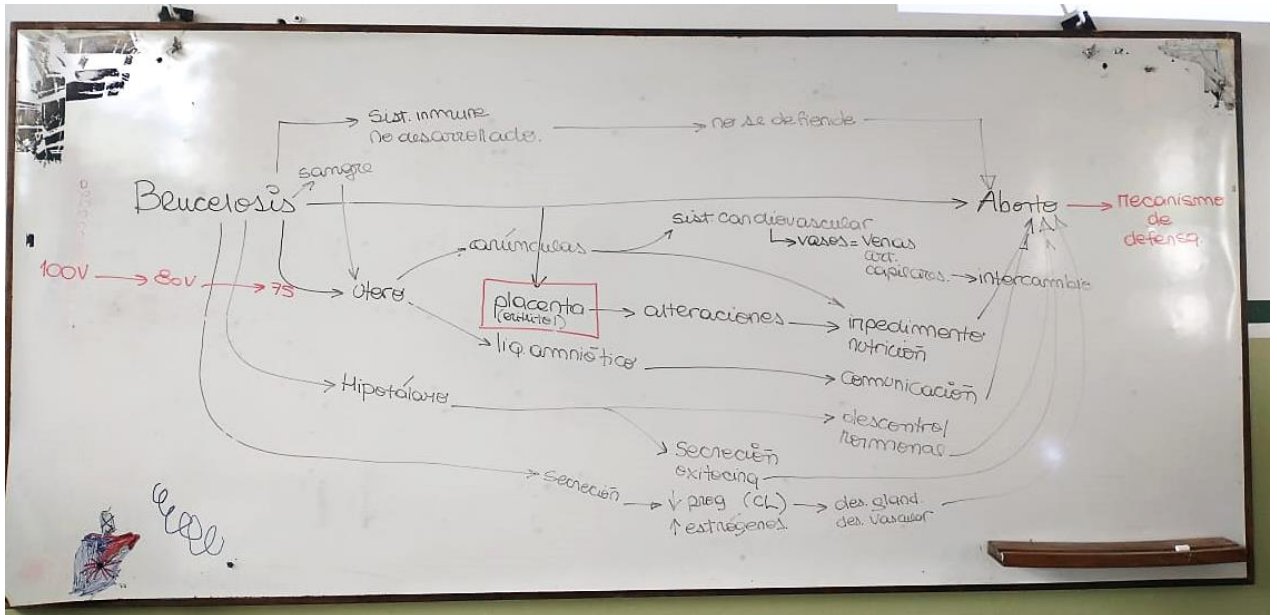 Sist. inmune
no desarrollado.
no se defiende
sangre
Brucelosis
Aborto
mecanismo
de
defensa.
sist candiovascular
vasos = venas
art.
capilares.
intercambio
carúnculas
100V
80V
75
útero.
placenta
alteraciones
inpedimento
nutrición
liq. amniótico
comunicación
Hipotálamo
descontrol
hormonas
secreción
oxitocina
secreción
↓ prog (CL)
↑ estrógenos.
des. gland.
des. vascular